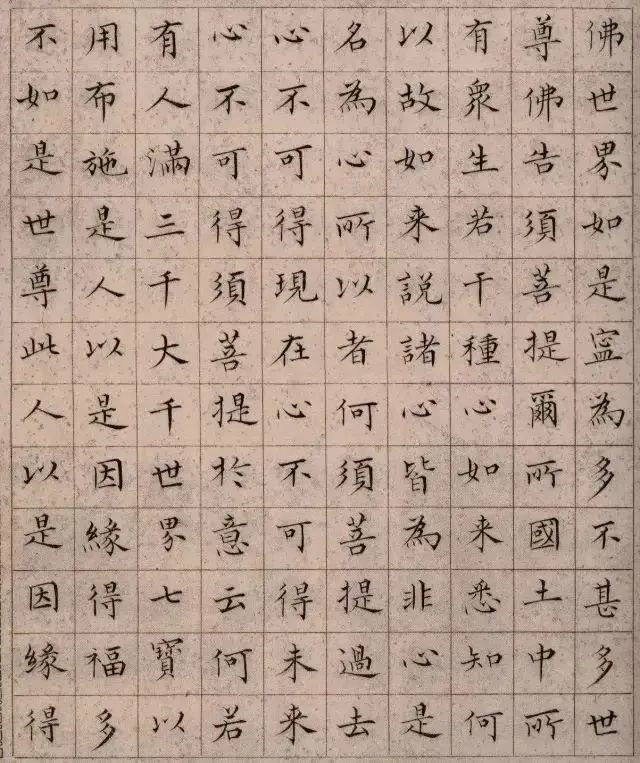 佛世界如是寍為多不甚多世
尊佛告須菩提爾所國土中所
有衆生若干種心如来悉知何
以故如来說諸心皆為非心是
名為心所以者何須菩提過去
心不可得現在心不可得未来
心不可得須菩提於意云何若
有人滿三千大千世界七寶以
用布施是人以是因緣得福多
不如是世尊此人以是因緣得